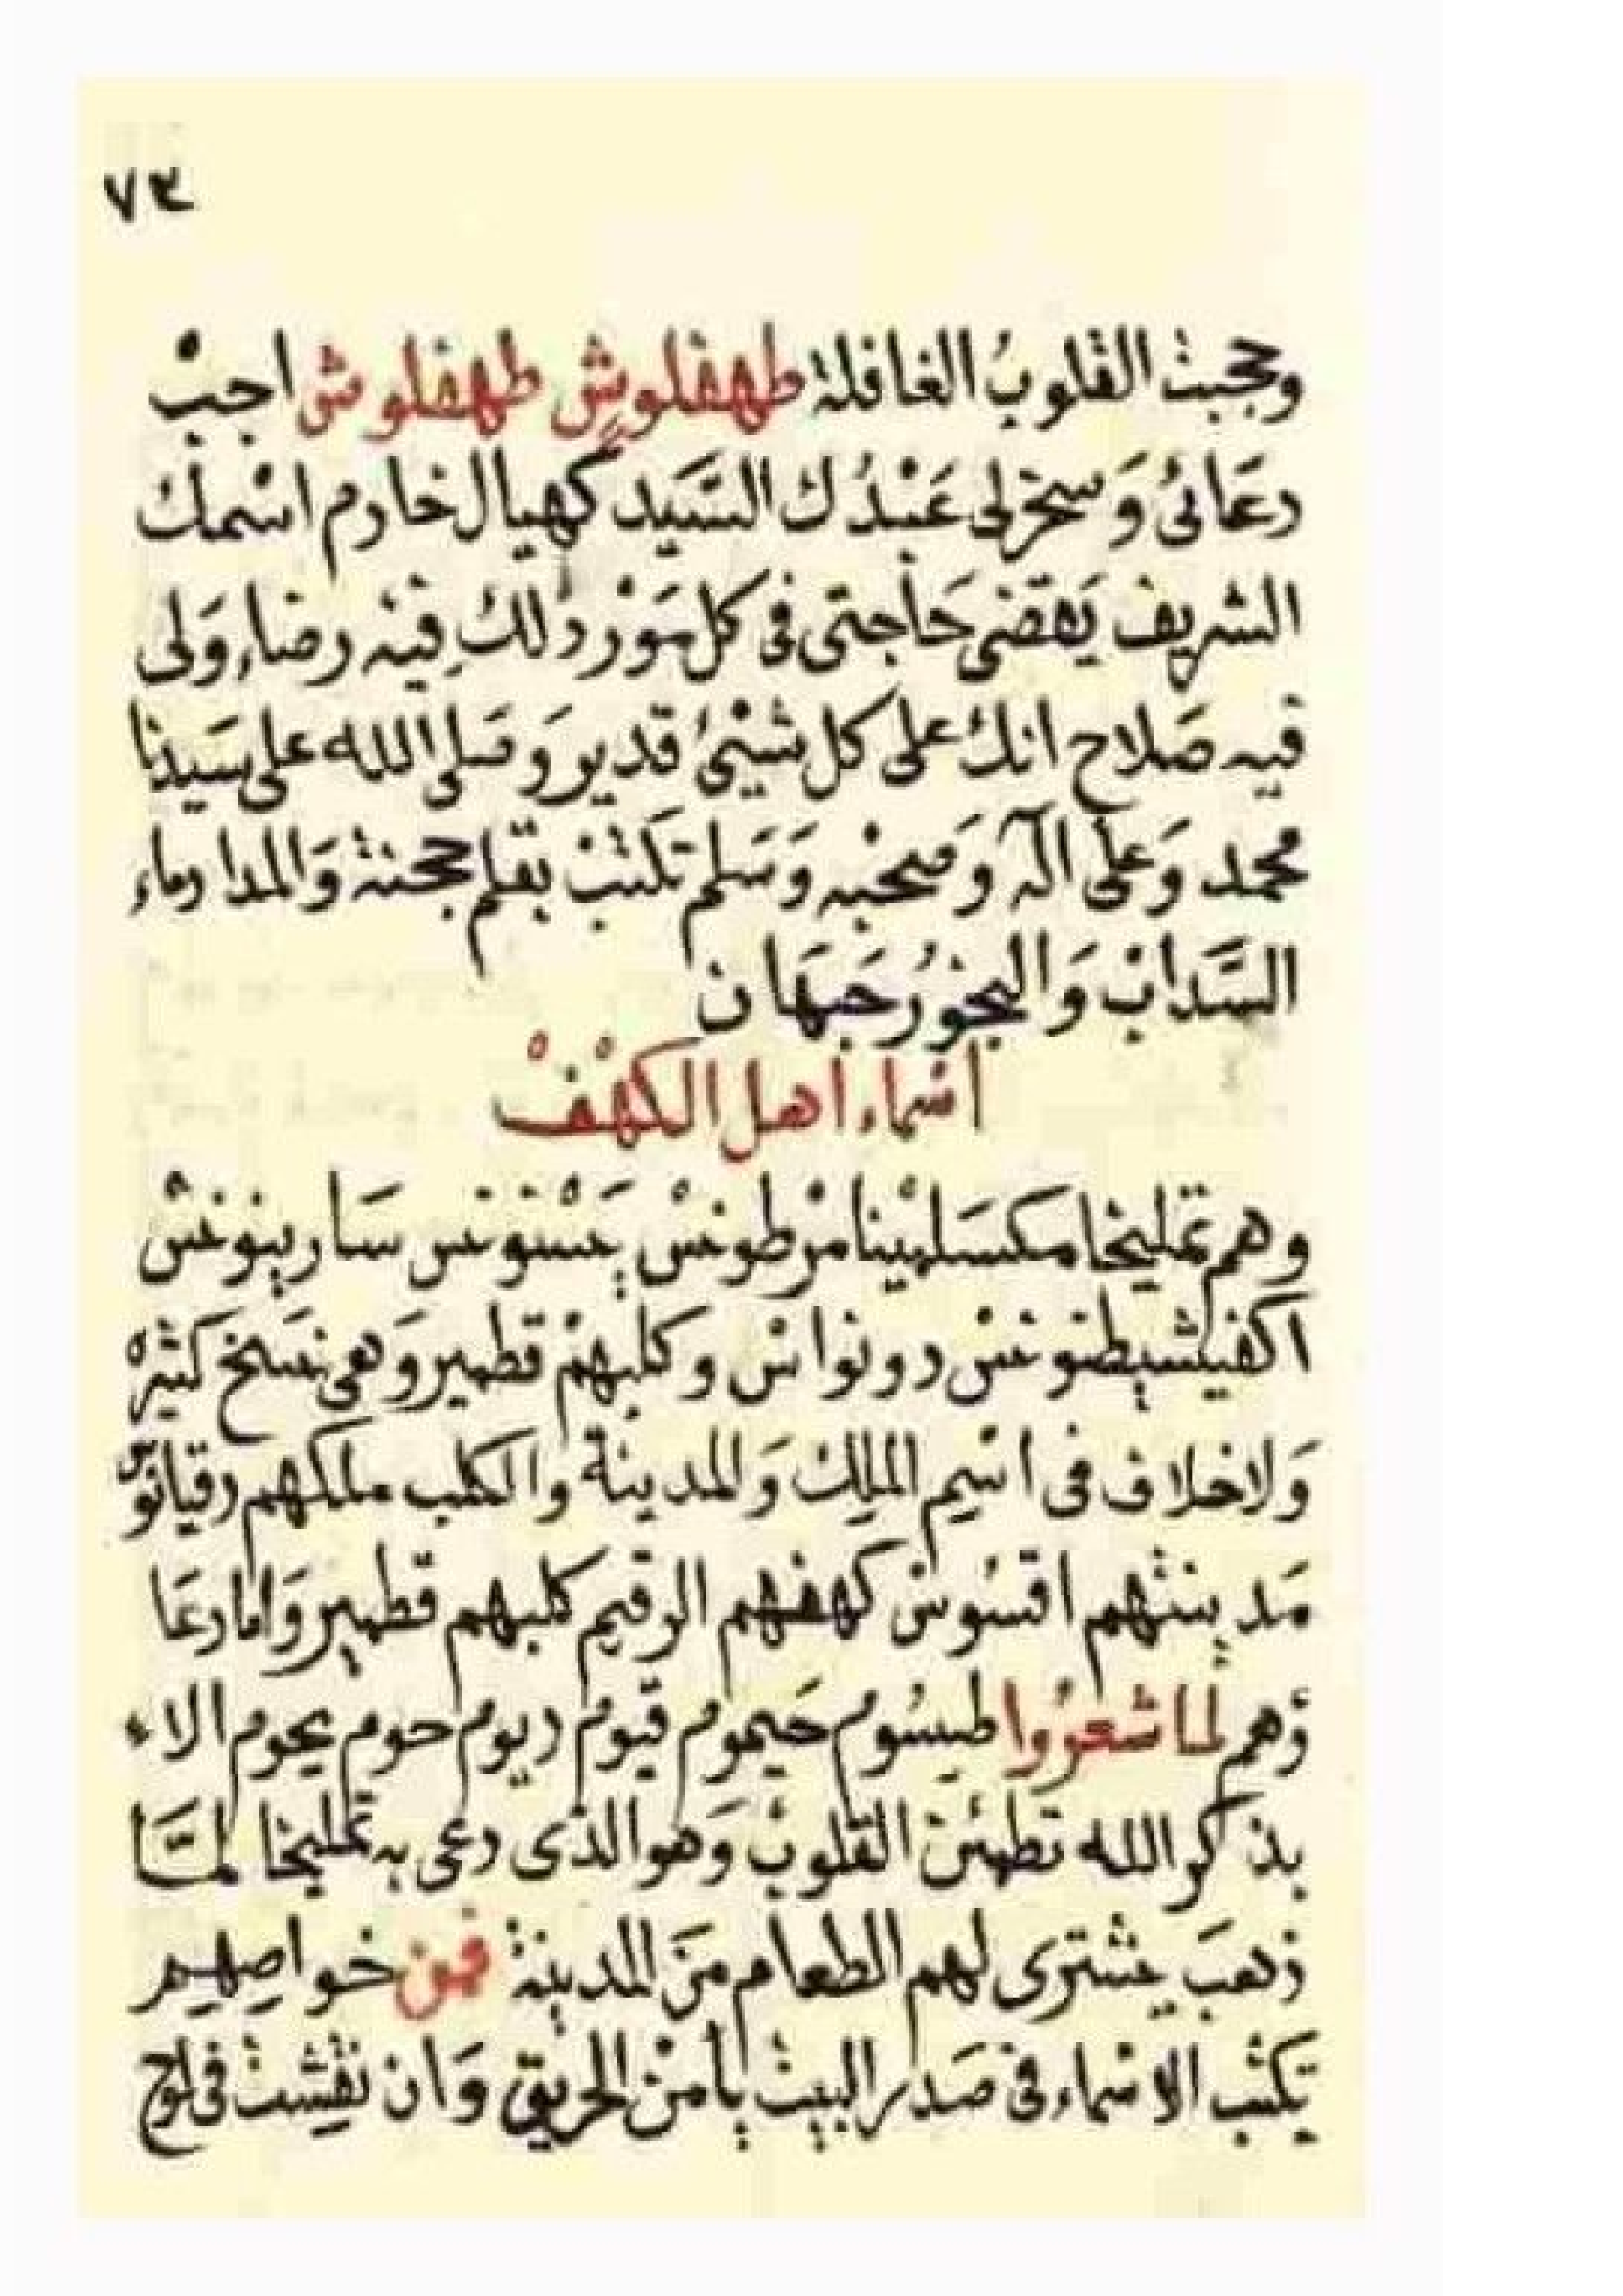 ٧٤
وحجبت القلوبُ الغافلة طهفلوش طهفلوش اجبْ
دعَائ وَسخرلى عَبْدُك السَّيد كهيال خادم اسْمك
الشريف يَقضى حَاجتى فى كل مَوْرد لك فيْه رضاء وَلى
فيه صَلاح انك على كل شيْئ قدير وَصَلى الله على سَيدنا
محمد وَعلى آله وَصحْبه وَسَلم تكتبْ بقلم جحنة وَالمداد ماء
السَّدابْ وَالبخوُر حَبهَان
اسْماء اهل الكهْفْ
وهم تمليخا مكسَلمْينا مرْطونسْ يَسْنونس سَاربنونسْ
اكفيشيطنونسْ دونوانسْ وكلبهمْ قطمير وَهى نسَخ كثيرْه
وَلاخلاف فى اسْمِ الملِك وَالمدينة والكلب ملكهم دقيانوّس
مَدينتهم اقسُوس كهفهم الرقيم كلبهم قطمير وَامادعَا
ؤهم لما شعرُوا طيسُوم حَيموم قيوم ديوم حوم يحوم الاء
بذكرالله تطمئن القلوبُ وَهوالذى دعى به تمليخا لمَّا
ذهبَ يشترى لهم الطعام منَ المدينة فمن خواصِهِم
يَكتب الاسْماء فى صَدر البيت يأمنْ الحريق وَان نقشت فى لوح